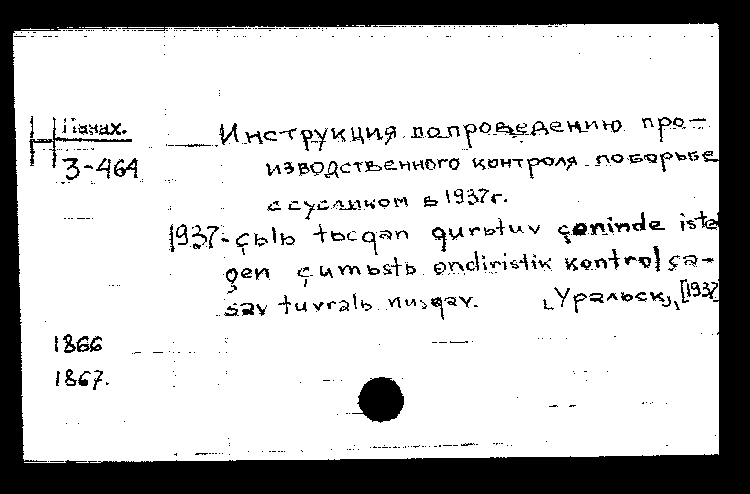 Н Панах.
3-464
Инструкция по проведению про-
изводственного контроля по борьбе
с сусликом в 1937г.
1937-çьlь tьcqan qurьtuv çөninde iste
gen çumьstь өndiristik kontrol çа-
sav tuvralь nusqav. [Уральск], [1937
1866
1867.